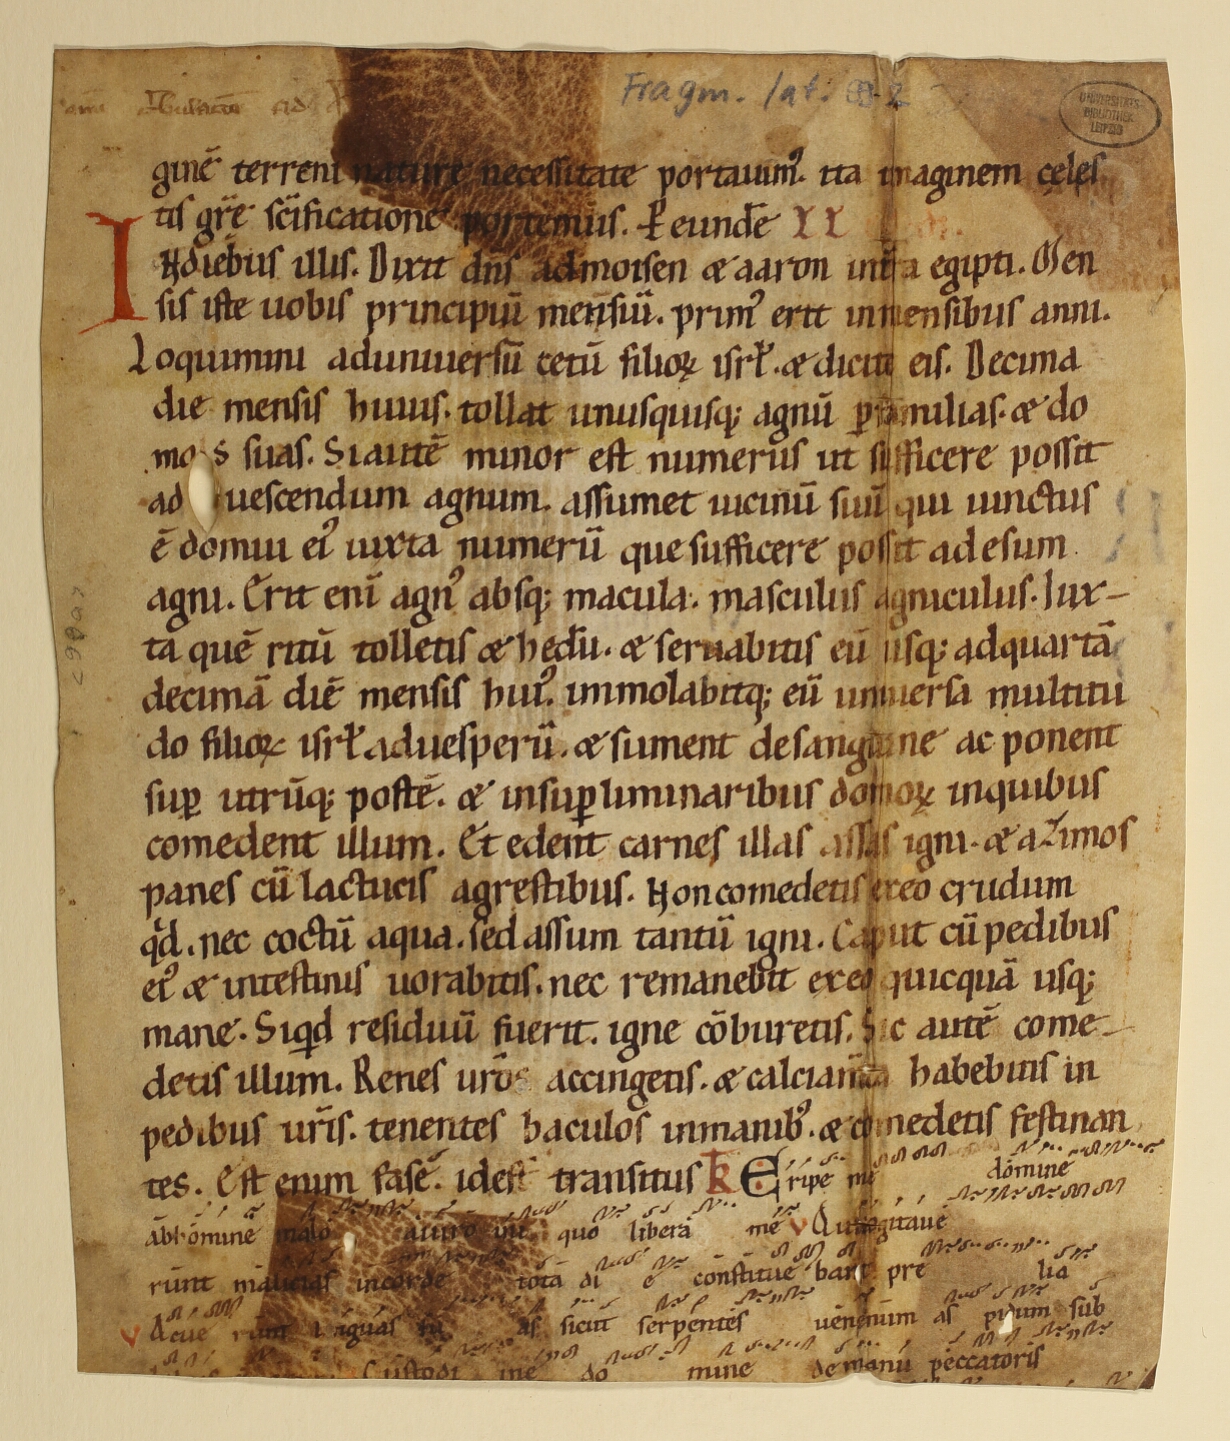 Fragm. lat.
UNIVERSITÄTS-
BIBLIOTHEK
LEIPZIG
ginē terreni nature necessitate portauimꝰ. ita imaginem cęles
tis gr̄e sc̄ificatione portemus. P eundē
INdiebus illis. Dixit dn̄s admoisen & aaron interra egipti. Men
sis iste uobis principiū mensiū. primꝰ erit inmensibus anni.
Loquimini aduniuersū cetū filioꝝ isrł. & dicite eis. Decima
die mensis huius. tollat unusquisq; agnū p familias. & do
mos suas. Siautē minor est numerus ut sufficere possit
ad uescendum agnum. assumet uicinū suū qui iunctus
ē domui eiꝰ iuxta numerū que sufficere possit adesum
agni. Erit eni agnꝰ absq; macula. masculus agniculus. Iux-
ta quē ritū tolletis & hedū. & seruabitis eū usq; adquartā
decimā diē mensis huiꝰ. immolabitq; eū uniuersa multitu
do filioꝝ isrł aduesperū. & sument desanguine ac ponent
suꝑ utrūq; postē. & insuꝑliminaribus domoꝝ inquibus
comedent illum. Et edent carnes illas assas igni. & azimos
panes cū lactucis agrestibus. Noncomedetis exeo crudum
qd. nec coctū aqua. sed assum tantū igni. Caput cū pedibus
eiꝰ & intestinis uorabitis. nec remanebit exeo quicquā usq;
mane. Siqd residuū fuerit. igne cōburetis. Sic autē come-
detis illum. Renes ur̄os accingetis. & calciamta habebitis in
pedibus ur̄is. tenentes baculos inmanibꝰ. & comedetis festinan
tes. Est enim fase. idest transitus R Eripe me domine
abhominē malo auiro ini quo libera me V Quicogitaue
runt malicias incorde tota di e constitue bant pre lia
V Acue runt linguas su as sicut serpentes uenenum as pidum sub
Custodi me do mine demanu peccatoris